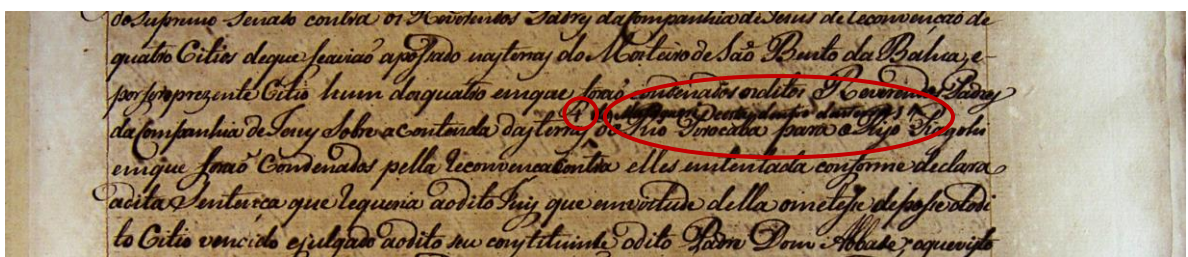 do Supremo Senado contra os Reverendos Padres da Companhia de Jesus de Reconvenção de
quatro Citios de que se avião apossado nas terras do Mosteiro de São Bento da Bahia, e
por ser o prezente Citio hum dos quatro em que forão condenados os ditos Reverendos Padres
da Companhia de Jesus Sobre a contenda das terras do Rio para o Rijo
em que forão Condenados pella Reconvenca contra elles intentada conforme declara
a dita Sentença que Requeria ao dito Juis que em virtude della o metesse de posse do di
to Citio vencido e julgado ao dito seu constituinte o dito Padre Dom Abbade, o que visto